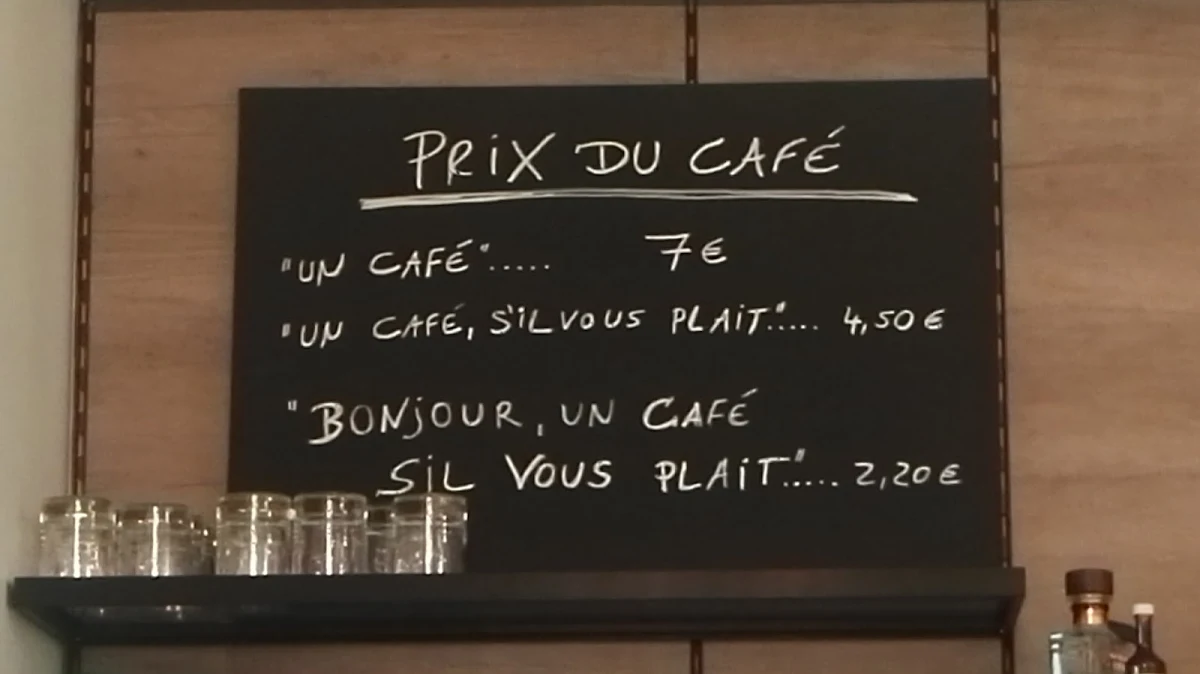 PRIX DU CAFÉ
"UN CAFÉ"..... 7€
"UN CAFÉ, S'IL VOUS PLAIT"..... 4,50€
"BONJOUR, UN CAFÉ
SIL VOUS PLAIT"..... 2,20€